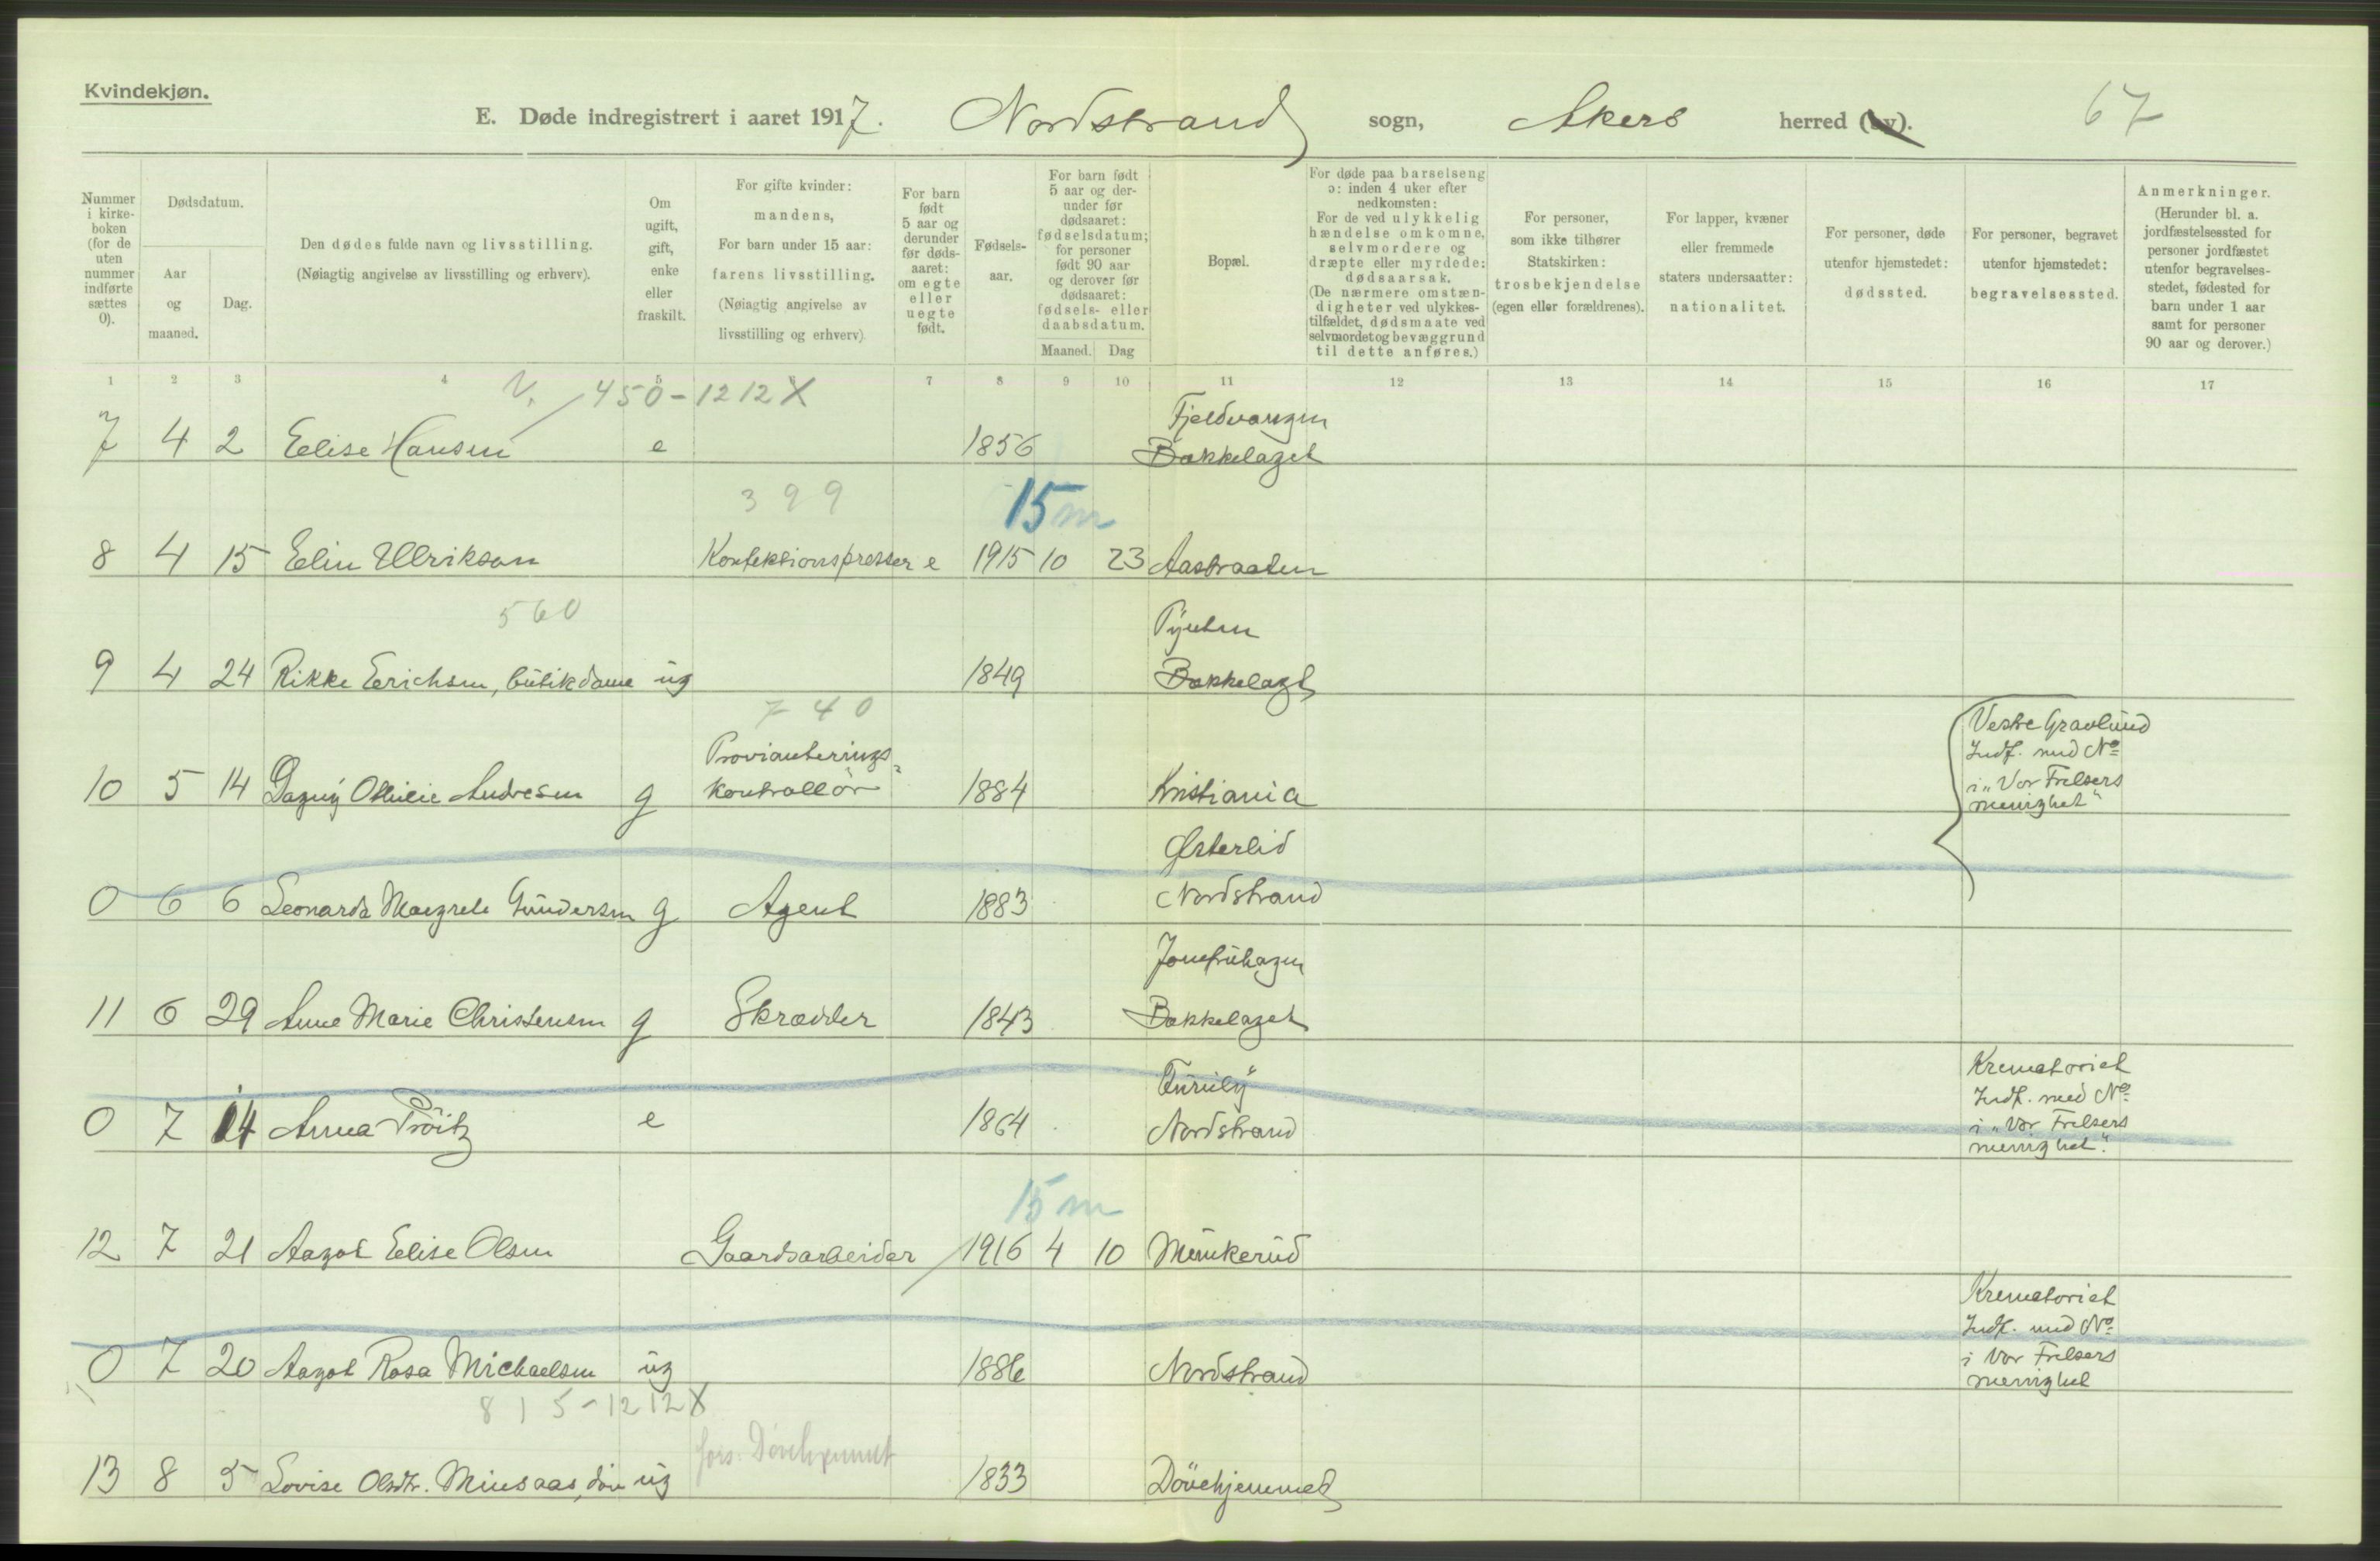 Kvindekjøn.
E. Døde indregistrert i aaret 1917. Nordstrand sogn, Akers herred (by). 67
Nummer i kirkeboken (for de uten nummer indførte sættes 0).
Dødsdatum.
Aar og maaned.
Dag.
Den dødes fulde navn og livsstilling.
(Nøiagtig angivelse av livsstilling og erhverv).
Om ugift, gift, enke eller fraskilt.
For gifte kvinder: mandens,
For barn under 15 aar: farens livsstilling.
(Nøiagtig angivelse av livsstilling og erhverv)
For barn født 5 aar og derunder før dødsaaret: om egte eller uegte født.
Fødselsaar.
For barn født 5 aar og derunder før dødsaaret: fødselsdatum; for personer født 90 aar og derover før dødsaaret: fødsels- eller daabsdatum.
Maaned. Dag
Bopæl.
For døde paa barselseng ɔ: inden 4 uker efter nedkomsten:
For de ved ulykkelig hændelse omkomne, selvmordere og dræpte eller myrdede: dødsaarsak.
(De nærmere omstændigheter ved ulykkestilfældet, dødsmaate ved selvmordet og bevæggrund til dette anføres.)
For personer, som ikke tilhører Statskirken: trosbekjendelse (egen eller forældrenes).
For lapper, kvæner eller fremmede staters undersaatter: nationalitet.
For personer, døde utenfor hjemstedet: dødssted.
For personer, begravet utenfor hjemstedet: begravelsessted.
Anmerkninger.
(Herunder bl. a. jordfæstelsessted for personer jordfæstet utenfor begravelsesstedet, fødested for barn under 1 aar samt for personer 90 aar og derover.)
1 2 3 4 5 6 7 8 9 10 11 12 13 14 15 16 17
450-1212X
Fjeldvangen
7 4 2 Elise Hansen e 1856 Bækkelaget
399 15 m
8 4 15 Elin Ullrikson Konfektionspresser e 1915 10 23 Aastraaten
560
Pynten
9 4 24 Rikke Erichsen, butikdame ug 1849 Bækkelaget
740
Provianterings-
10 5 14 Dagny Ottilie Andresen g kontrollör 1884 Kristiania
Vestre Gravlund
Indf. med No
i "Vor Frelsers
menighet"
Østerlid
0 6 6 Leonarda Margrete Gundersen g Agent 1883 Nordstrand
Jomfruhagen
11 6 29 Anne Marie Christensen g Skrædder 1843 Bækkelaget
Furuly
0 7 14 Anna Pröitz e 1864 Nordstrand
Krematoriet
Indf. med No
i "Vor Frelsers
menighet".
15 m
12 7 21 Aagot Elise Olsen Gaardsarbeider 1916 4 10 Munkerud
0 7 20 Aagot Rosa Michaelsen ug 1886 Nordstrand
Krematoriet
Indf. med No
i Vor Frelsers
menighet
815-1212X
fors. Dövehjemmet
13 8 5 Lovise Olsdtr. Miusaas, döv ug 1833 Dövehjemmet